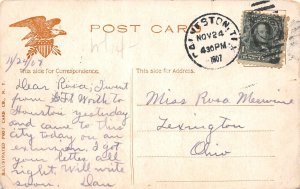 GALVESTON, TEX.
NOV 24
4 30 PM
1907
11/24/07
This side for Correspondence.
This side for Address.
Dear Rosa, I went
from Ft Worth to
Houston yesterday
and came to this
city today on an
excursion. I got
your letter all
right. Will write
soon. Dan
Miss Rosa
Lexington
Ohio
ILLUSTRATED POST CARD CO., N. Y.